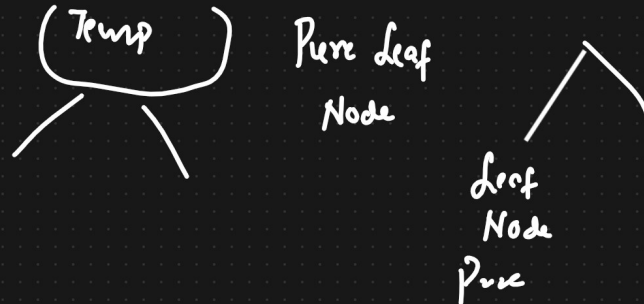 Temp
Pure Leaf
Node
Leaf
Node
Pure